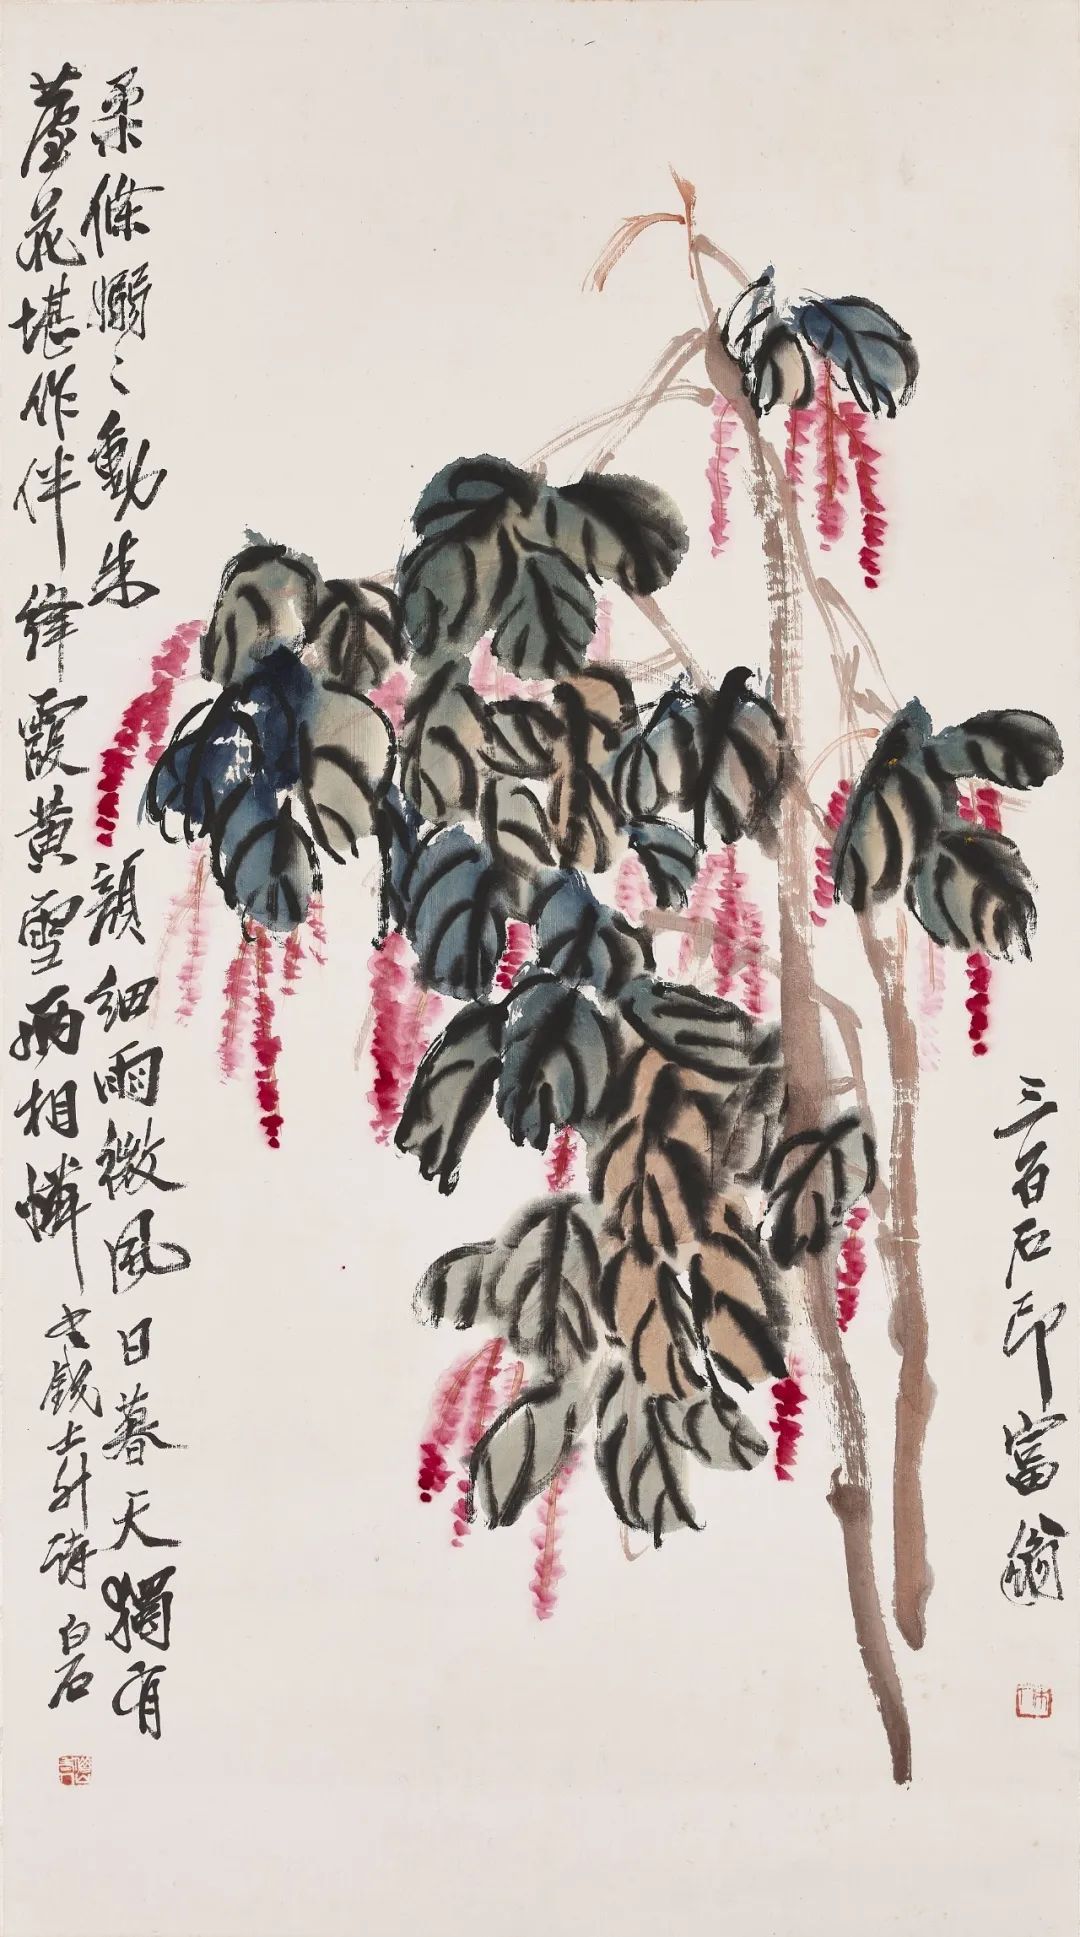 三百石印富翁
柔條嫋〻動朱顏細雨微風日暮天獨有
蘆花堪作伴絳霞黃雪兩相憐書錢士升詩白石